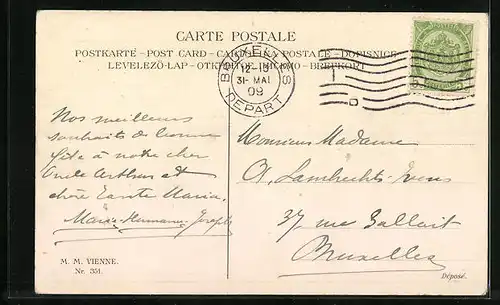 CARTE POSTALE
POSTKARTE - POST CARD - CARTOLINA POSTALE - DOPISNICE
LEVELEZÖ-LAP - OTKRITOE PISMO - BREFKORT
BRUXELLES
12-
31- MAI
09
DEPART
Nos meilleurs
souhaits de bonne
fête à notre cher
Oncle Arthur et
chère Tante Maria.
Maria-Hermann-Joseph
M. M. VIENNE.
Nr. 351.
Monsieur Madame
A. Lambrechts-
37 rue Gallait
Bruxelles
Déposé.